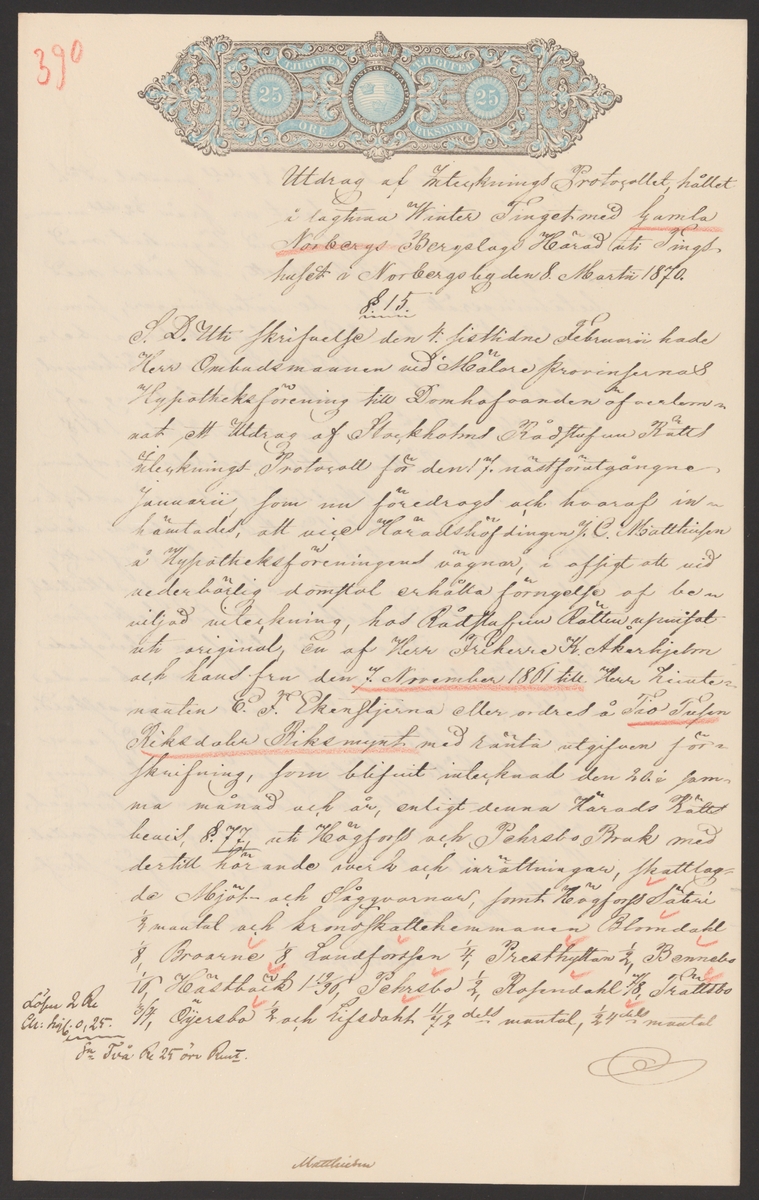 390
TJUGUFEM TJUGUFEM
25 25
ÖRE RIKSMYNT
Utdrag af Intecknings Protocollet, hållet
å lagtima Winter Tinget med Gamla
Norbergs Bergslags Härad uti Tings-
huset i Norbergsby den 8. Martii 1870.
§ 15.
S. D. Uti skrifvelse den 4: sistlidne Februarii hade
Herr Ombudsmannen vid Mälare provinsernas
Hypotheksförening till Domhafvanden öfverlem-
nat ett Utdrag af Stockholms Rådstufvu Rätts
Intecknings Protocoll för den 17. nästförutgångne
Januarii, som nu föredrogs och hvaraf in-
hämtades, att vice Häradshöfdingen J. C. Matthiesen
å Hypotheksföreningens vägnar, i afsigt att vid
vederbörlig domstol erhålla förnyelse af be-
viljad inteckning, hos Rådstufvu Rätten uppvisat
uti original, en af Herr Friherre K. Åkerhjelm
och hans fru den 7. November 1861 till Herr Lieute-
nanten C. F. Ekenstjerna eller ordres å Tio Tusen
Riksdaler Riksmynt med ränta utgifven för-
skrifning, som blifvit intecknad den 26 i sam-
ma månad och år, enligt denna Härads Rätts
bevis, § 77, uti Högforss och Pehrsbo Bruk med
dertill hörande verk och inrättningar, skattlag-
de Mjöl- och Sågqvarnar, samt Högforss Säteri
1/2 mantal och kronoskattehemmanen Blomdahl
1/8, Broarne 1/8, Landforssen 1/4, Presthyttan 1/2, Bennebo
1/16, Hästbäck 1 19/96, Pehrsbo 1/2, Rosendahl 7/8, Trättsbo
Öijersbo 1/2 och Lifsdahl 11/72 dels mantal, 1/24 dels mantal
Lösen 2 Rd
Ch: hög 0,25.
Sm Två Rd 25 öre Rmt.
Matthiesen